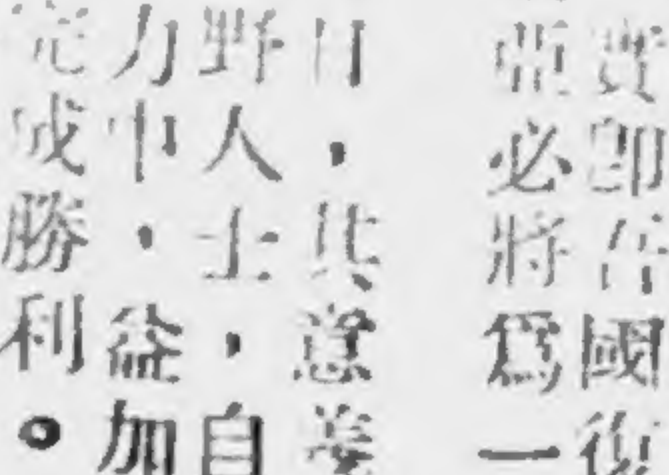 實卽吾國復
亞必將爲一
日，其意義
野人士，自
力中，益加
完成勝利。